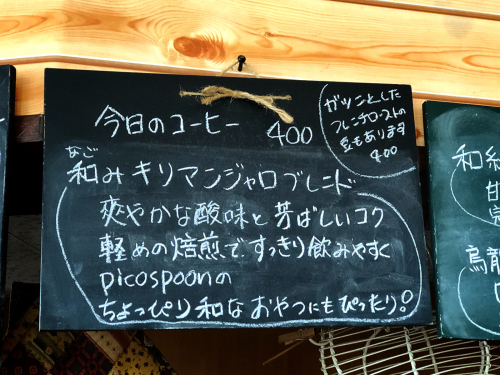 今日のコーヒー 400
ガツンとした
フレンチローストの
豆もあります
400
なご
和みキリマンジャロブレンド
爽やかな酸味と芳ばしいコク
軽めの焙煎ですっきり飲みやすく
picospoonの
ちょっぴり和なおやつにもぴったり!
和
烏龍